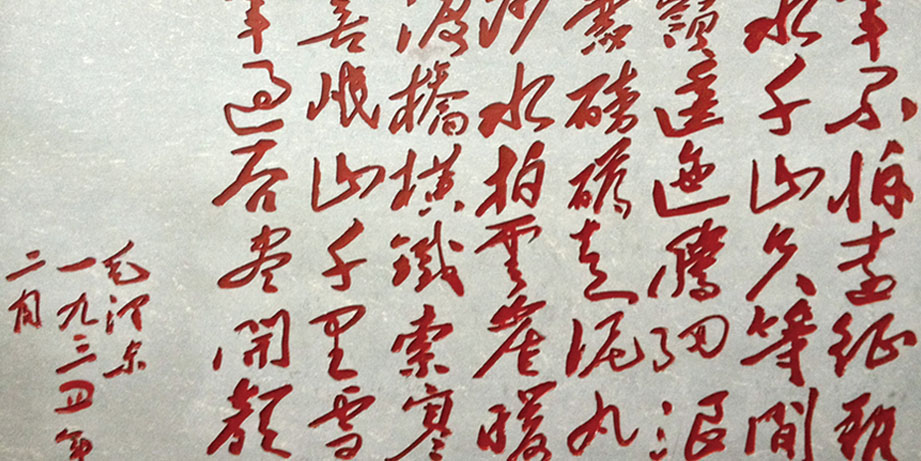 軍不怕远征難
水千山只等閒
嶺逶迤騰細浪
蒙磅礴走泥丸
沙水拍雲崖暖
渡橋橫鐵索寒
喜岷山千里雪
軍過后尽開顏
毛泽东
一九三四年
二月